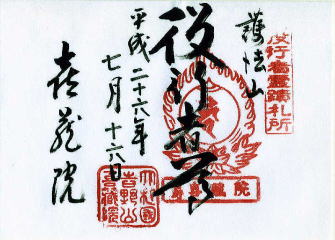 役行者霊蹟札所
護法山
役行者
平成二十六年
七月十六日
喜蔵院
大和國
吉野山
喜蔵院